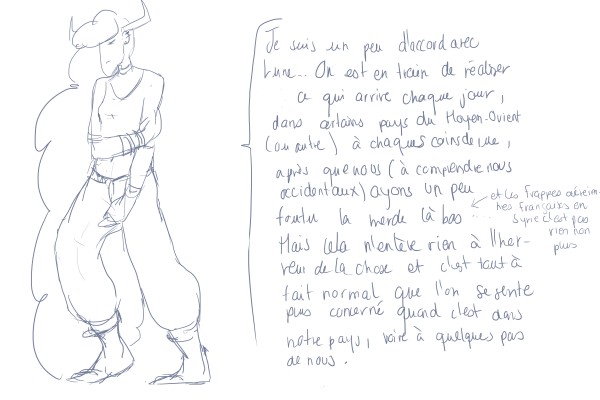 Je suis un peu d'accord avec
Lune... On est en train de réaliser
ce qui arrive chaque jour,
dans certains pays du Moyen-Orient
(ou autre) à chaques coins de rue,
après que nous (à comprendre nous
occidentaux) ayons un peu
foutu la merde là bas
Mais cela n'enlève rien à l'hor-
reur de la chose et c'est tout à
fait normal que l'on se sente
plus concerné quand c'est dans
notre pays, voire à quelques pas
de nous.
et les frappes aérien-
nes françaises en
Syrie c'est pas
rien non
plus